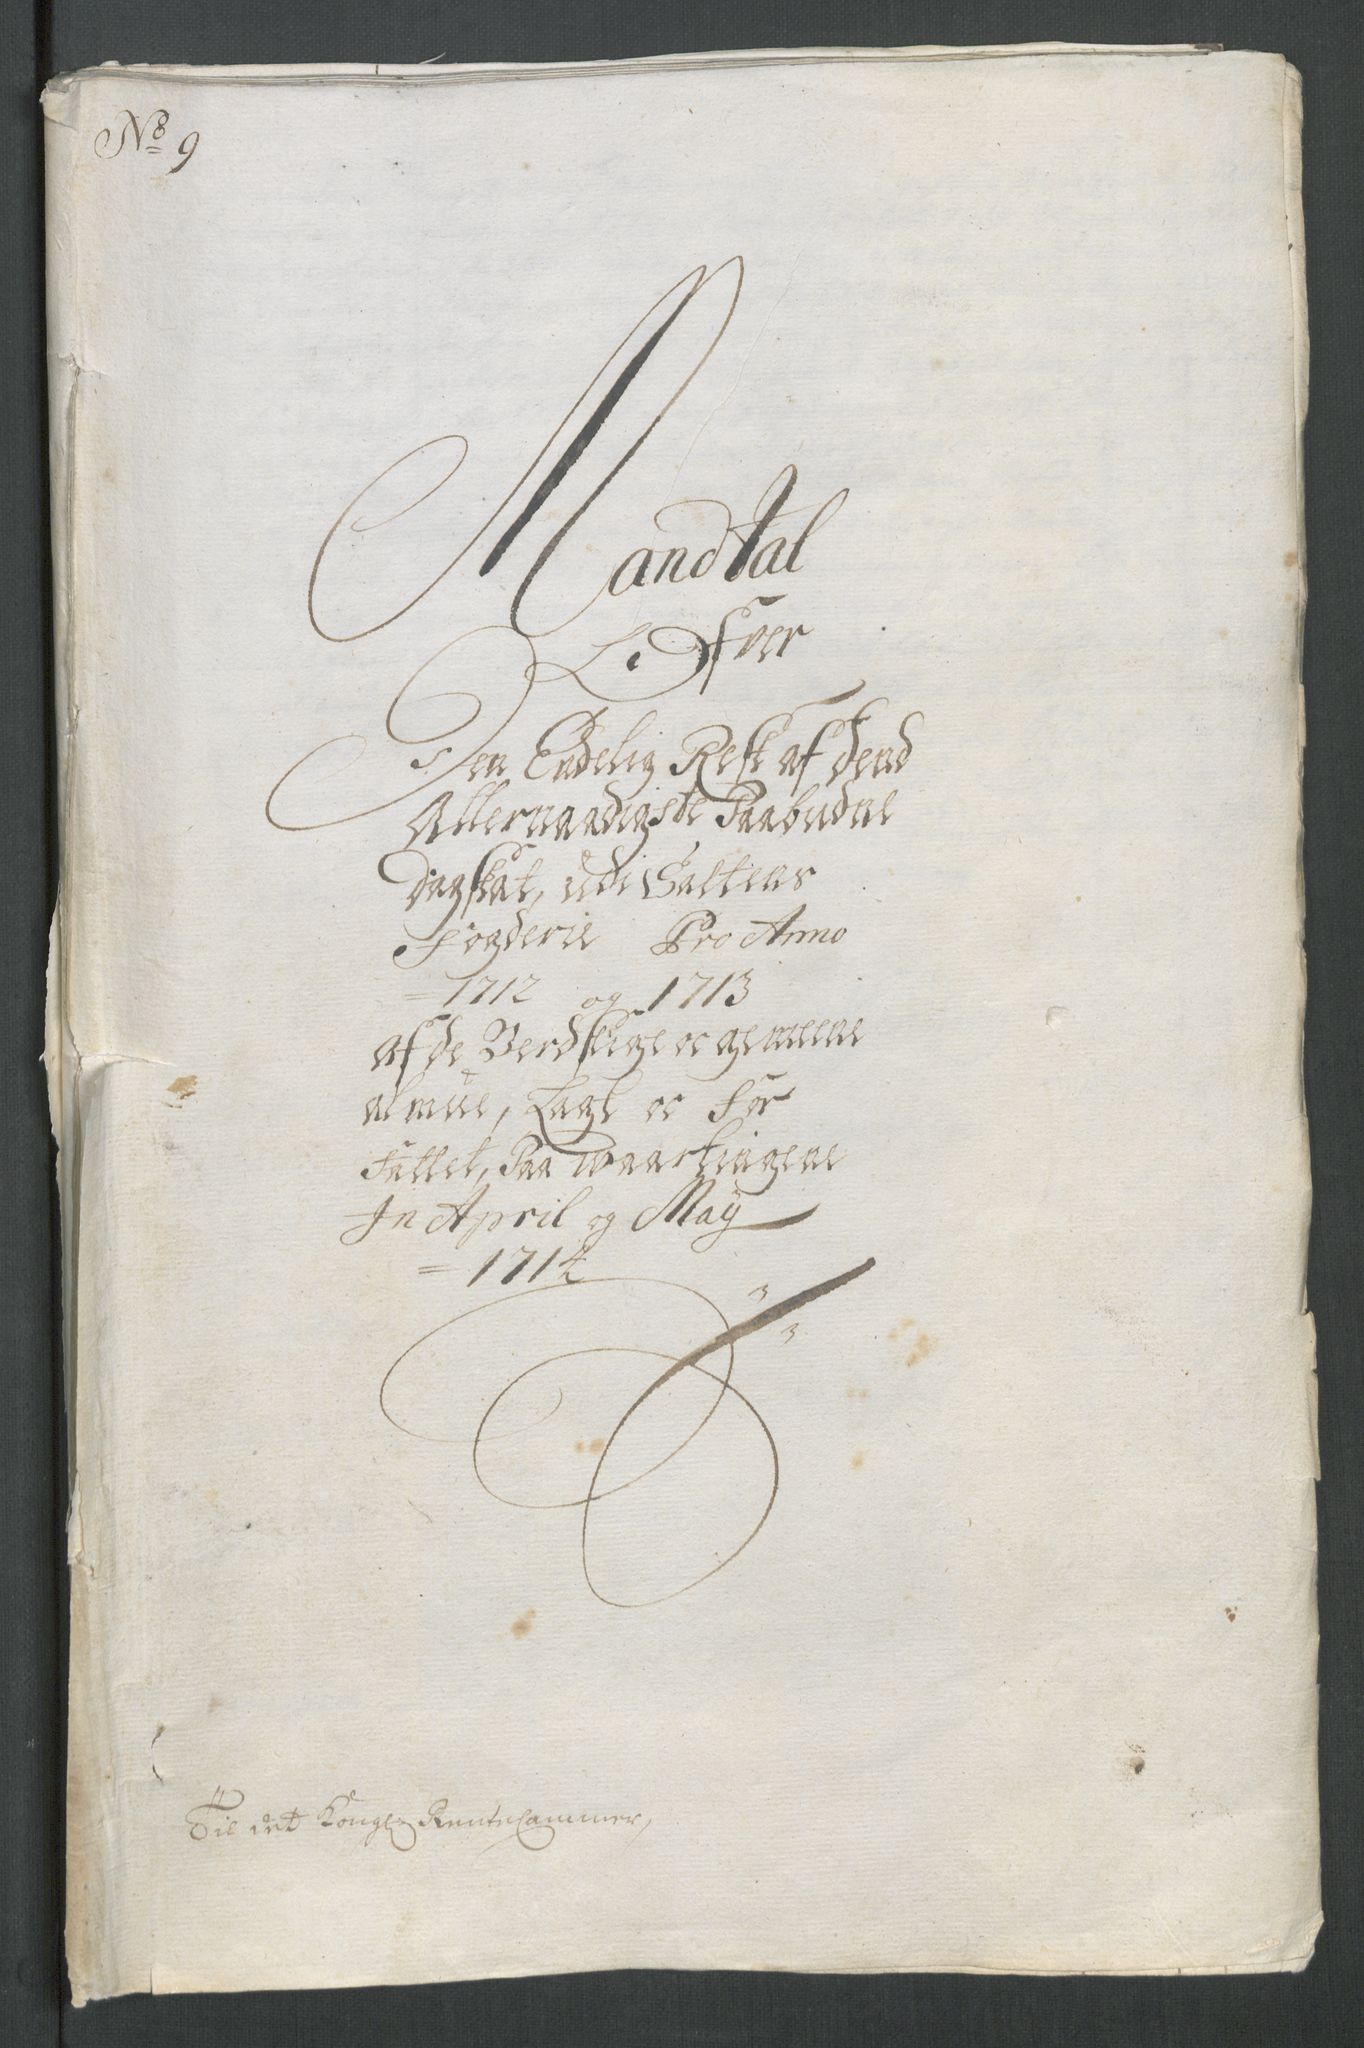 No 9
Mandtal
Ofver
Den Endelig Rest af dend
Allernaadigste Paabudne
dagskat, udi Saltens
Fogderie Pro Anno
1712 og 1713
af de Verdslige oc gemeene
almue, Lagt oc for
fattet, Paa waartingene
In April og May
1714
Til det Kongl. Rentecammer,